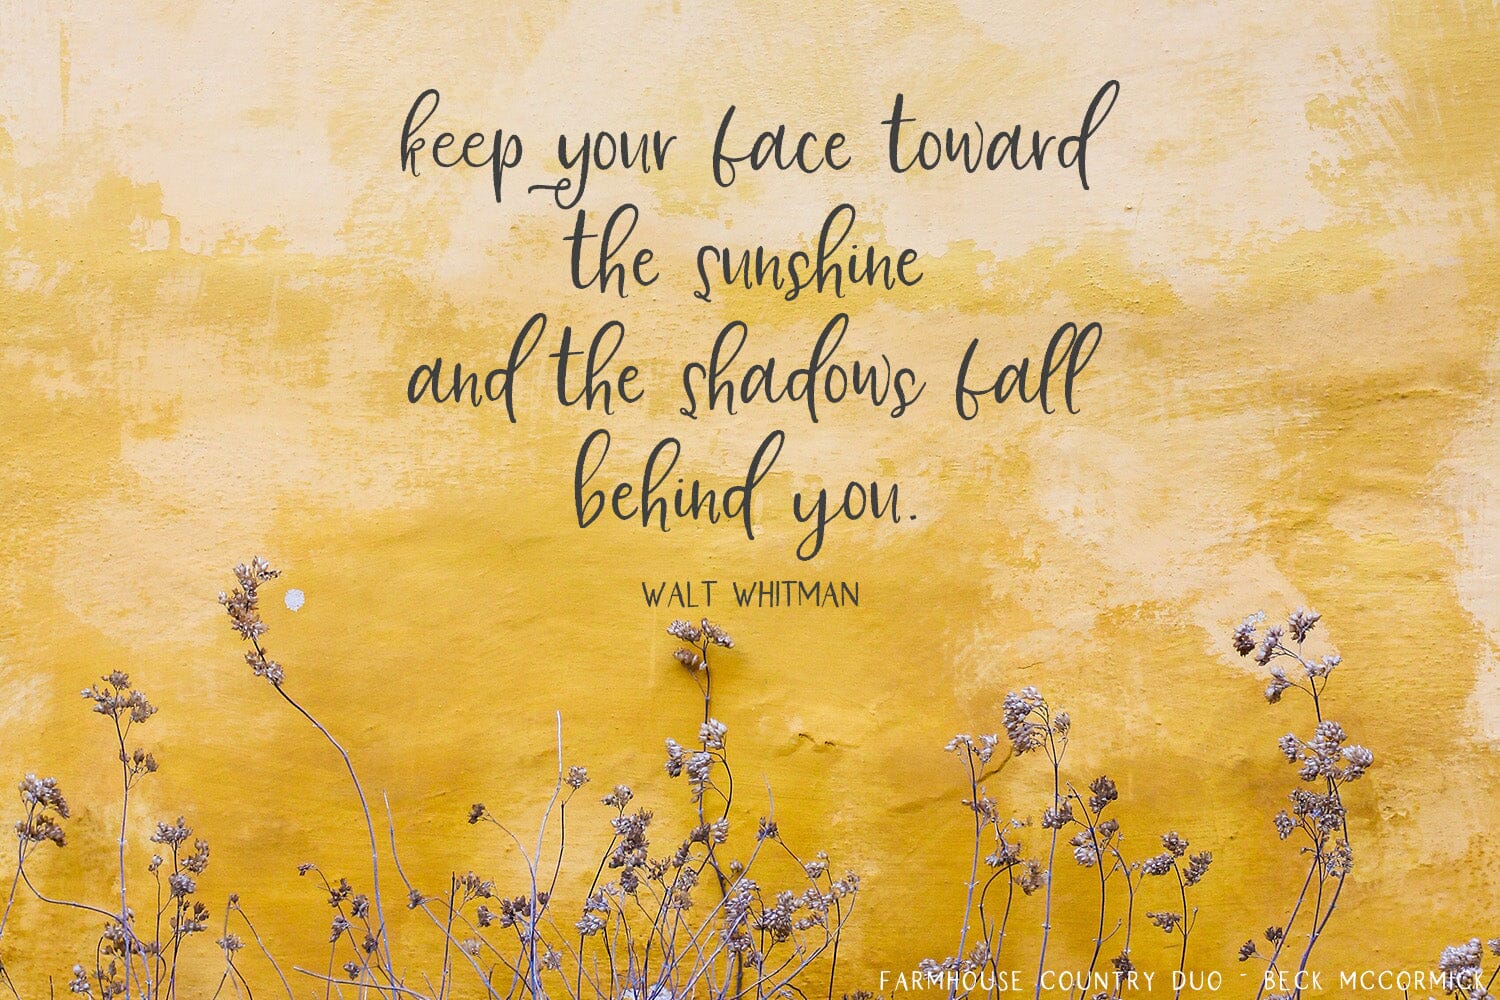 keep your face toward
the sunshine
and the shadows fall
behind you.
WALT WHITMAN
FARMHOUSE COUNTRY DUO - BECK MCCORMICK